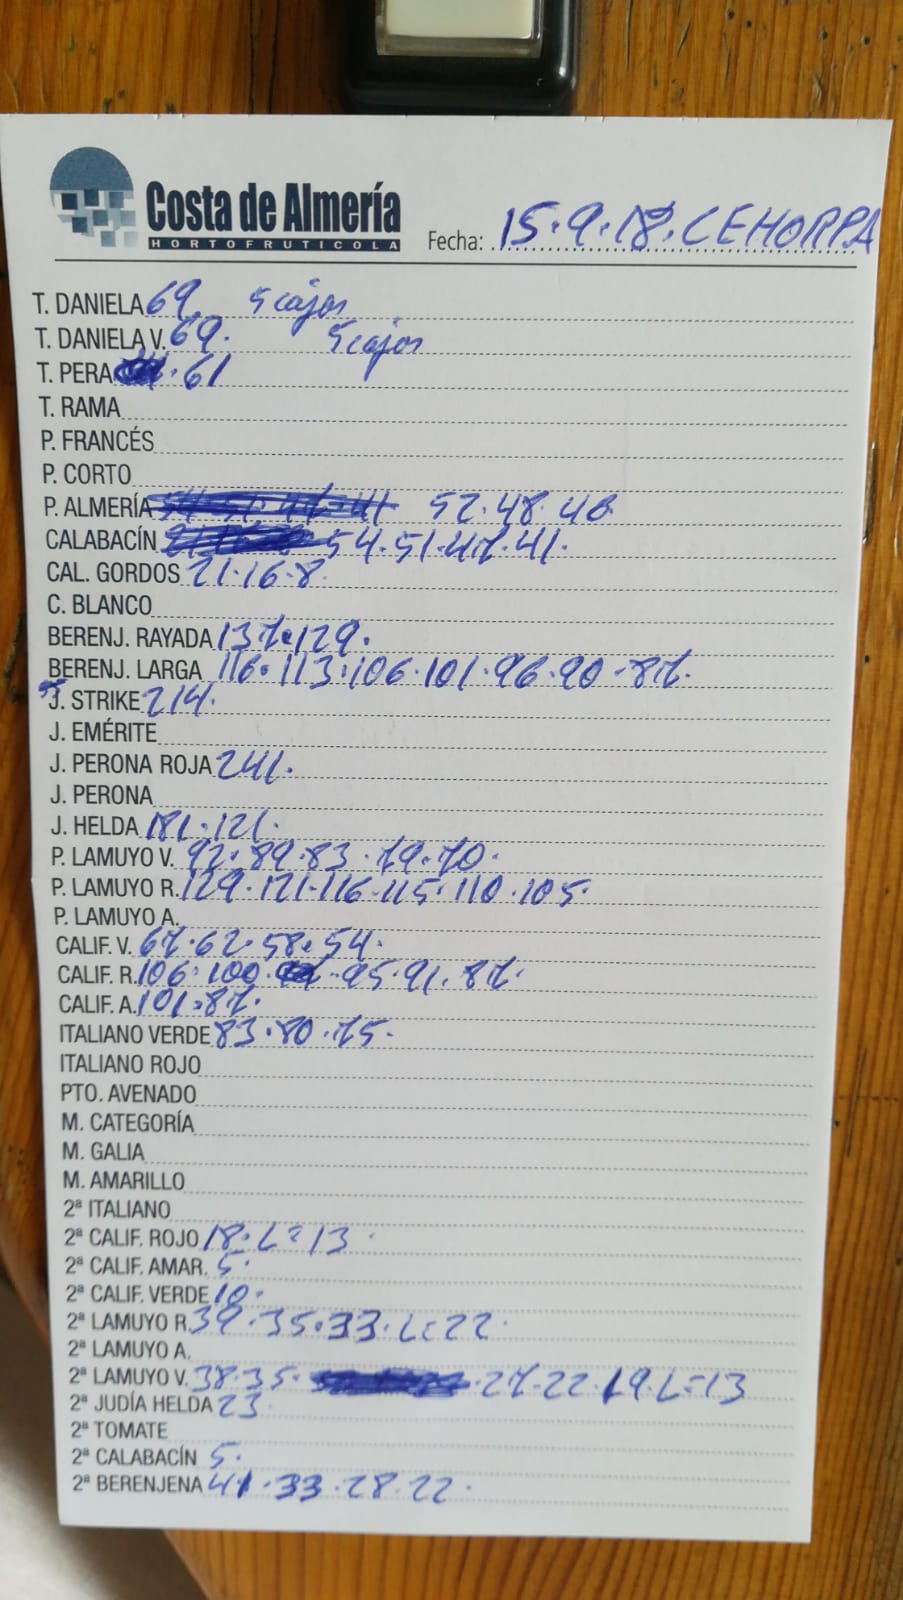 Costa de Almería
HORTOFRUTICOLA
Fecha: 15.9.18. CEHORPA
T. DANIELA 69. 5 cajas
T. DANIELA V. 69. 5 cajas
T. PERA .61
T. RAMA
P. FRANCÉS
P. CORTO
P. ALMERÍA 54-51-47-41 52.48.46
CALABACÍN 54.51.47.41.
CAL. GORDOS 21.16.8.
C. BLANCO
BERENJ. RAYADA 137.129.
BERENJ. LARGA 116.113.106.101.96.90.87.
J. STRIKE 214.
J. EMÉRITE
J. PERONA ROJA 241.
J. PERONA
J. HELDA 181.121.
P. LAMUYO V. 92.89.83.79.70.
P. LAMUYO R. 129.121.116.115.110.105.
P. LAMUYO A.
CALIF. V. 67.62.58.54.
CALIF. R. 106.100. .95.91.87.
CALIF. A. 101.87.
ITALIANO VERDE 83.80.75.
ITALIANO ROJO
PTO. AVENADO
M. CATEGORÍA
M. GALIA
M. AMARILLO
2ª ITALIANO
2ª CALIF. ROJO 18. L=13.
2ª CALIF. AMAR. 5.
2ª CALIF. VERDE 10.
2ª LAMUYO R. 39.35.33. L=22.
2ª LAMUYO A.
2ª LAMUYO V. 38.35. .27.22.19. L=13
2ª JUDÍA HELDA 23.
2ª TOMATE
2ª CALABACÍN 5.
2ª BERENJENA 41.33.28.22.